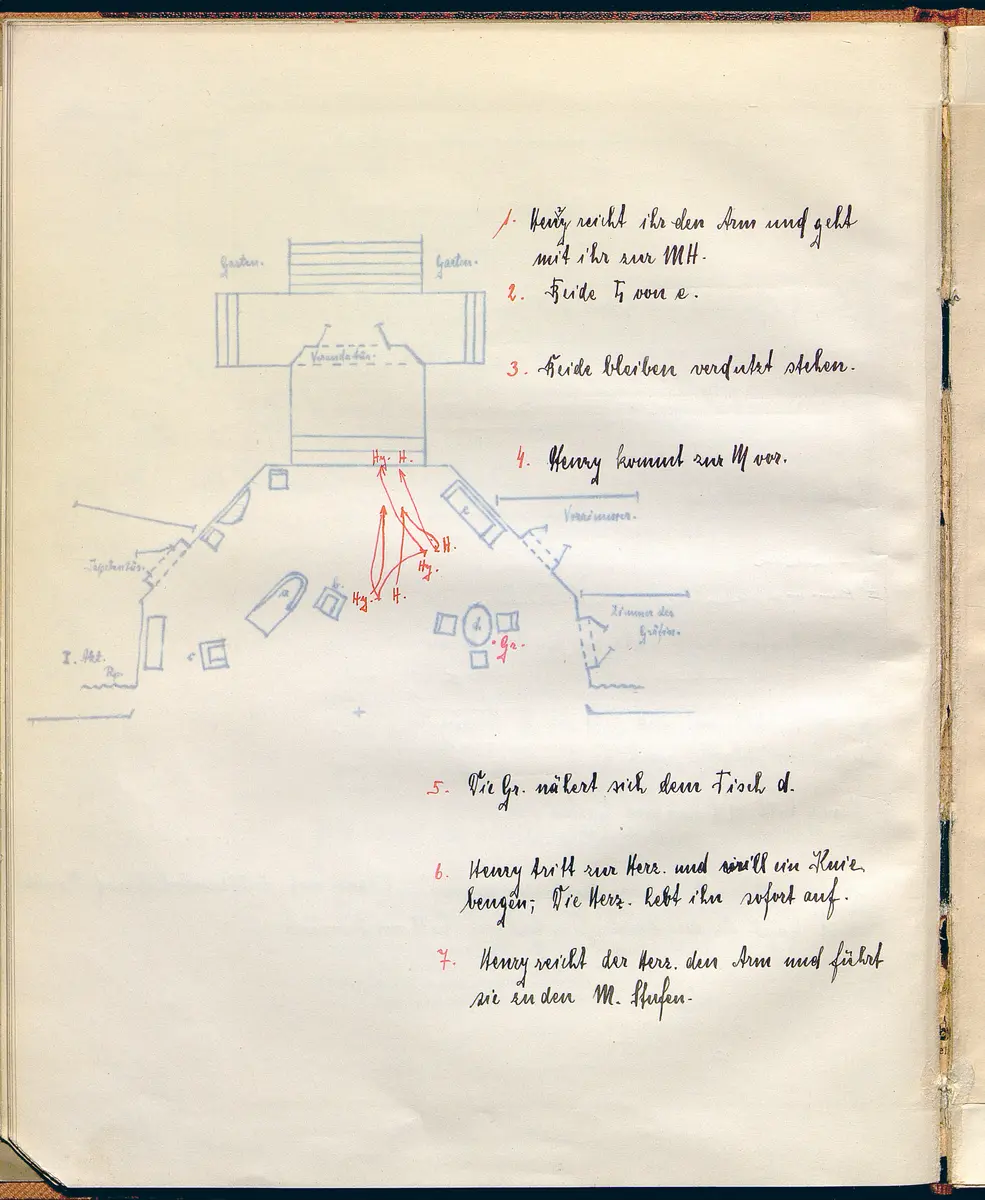 1. Henry reicht ihr den Arm und geht
mit ihr zur MH.
2. Beide von e.
3. Beide bleiben verdutzt stehen.
4. Henry kommt zur M vor.
Garten. Garten.
Verandatür.
Hy. H.
e
Vorzimmer.
H.
Hy.
Tapetentür.
Hy. H.
a b.
Zimmer der
Gräfin.
d
Gr.
c
I. Akt.
5. Die Gr. nähert sich dem Tisch d.
6. Henry tritt zur Herz. und will ein Knie
beugen; Die Herz. hebt ihn sofort auf.
7. Henry reicht der Herz. den Arm und führt
sie zu den M. Stufen.